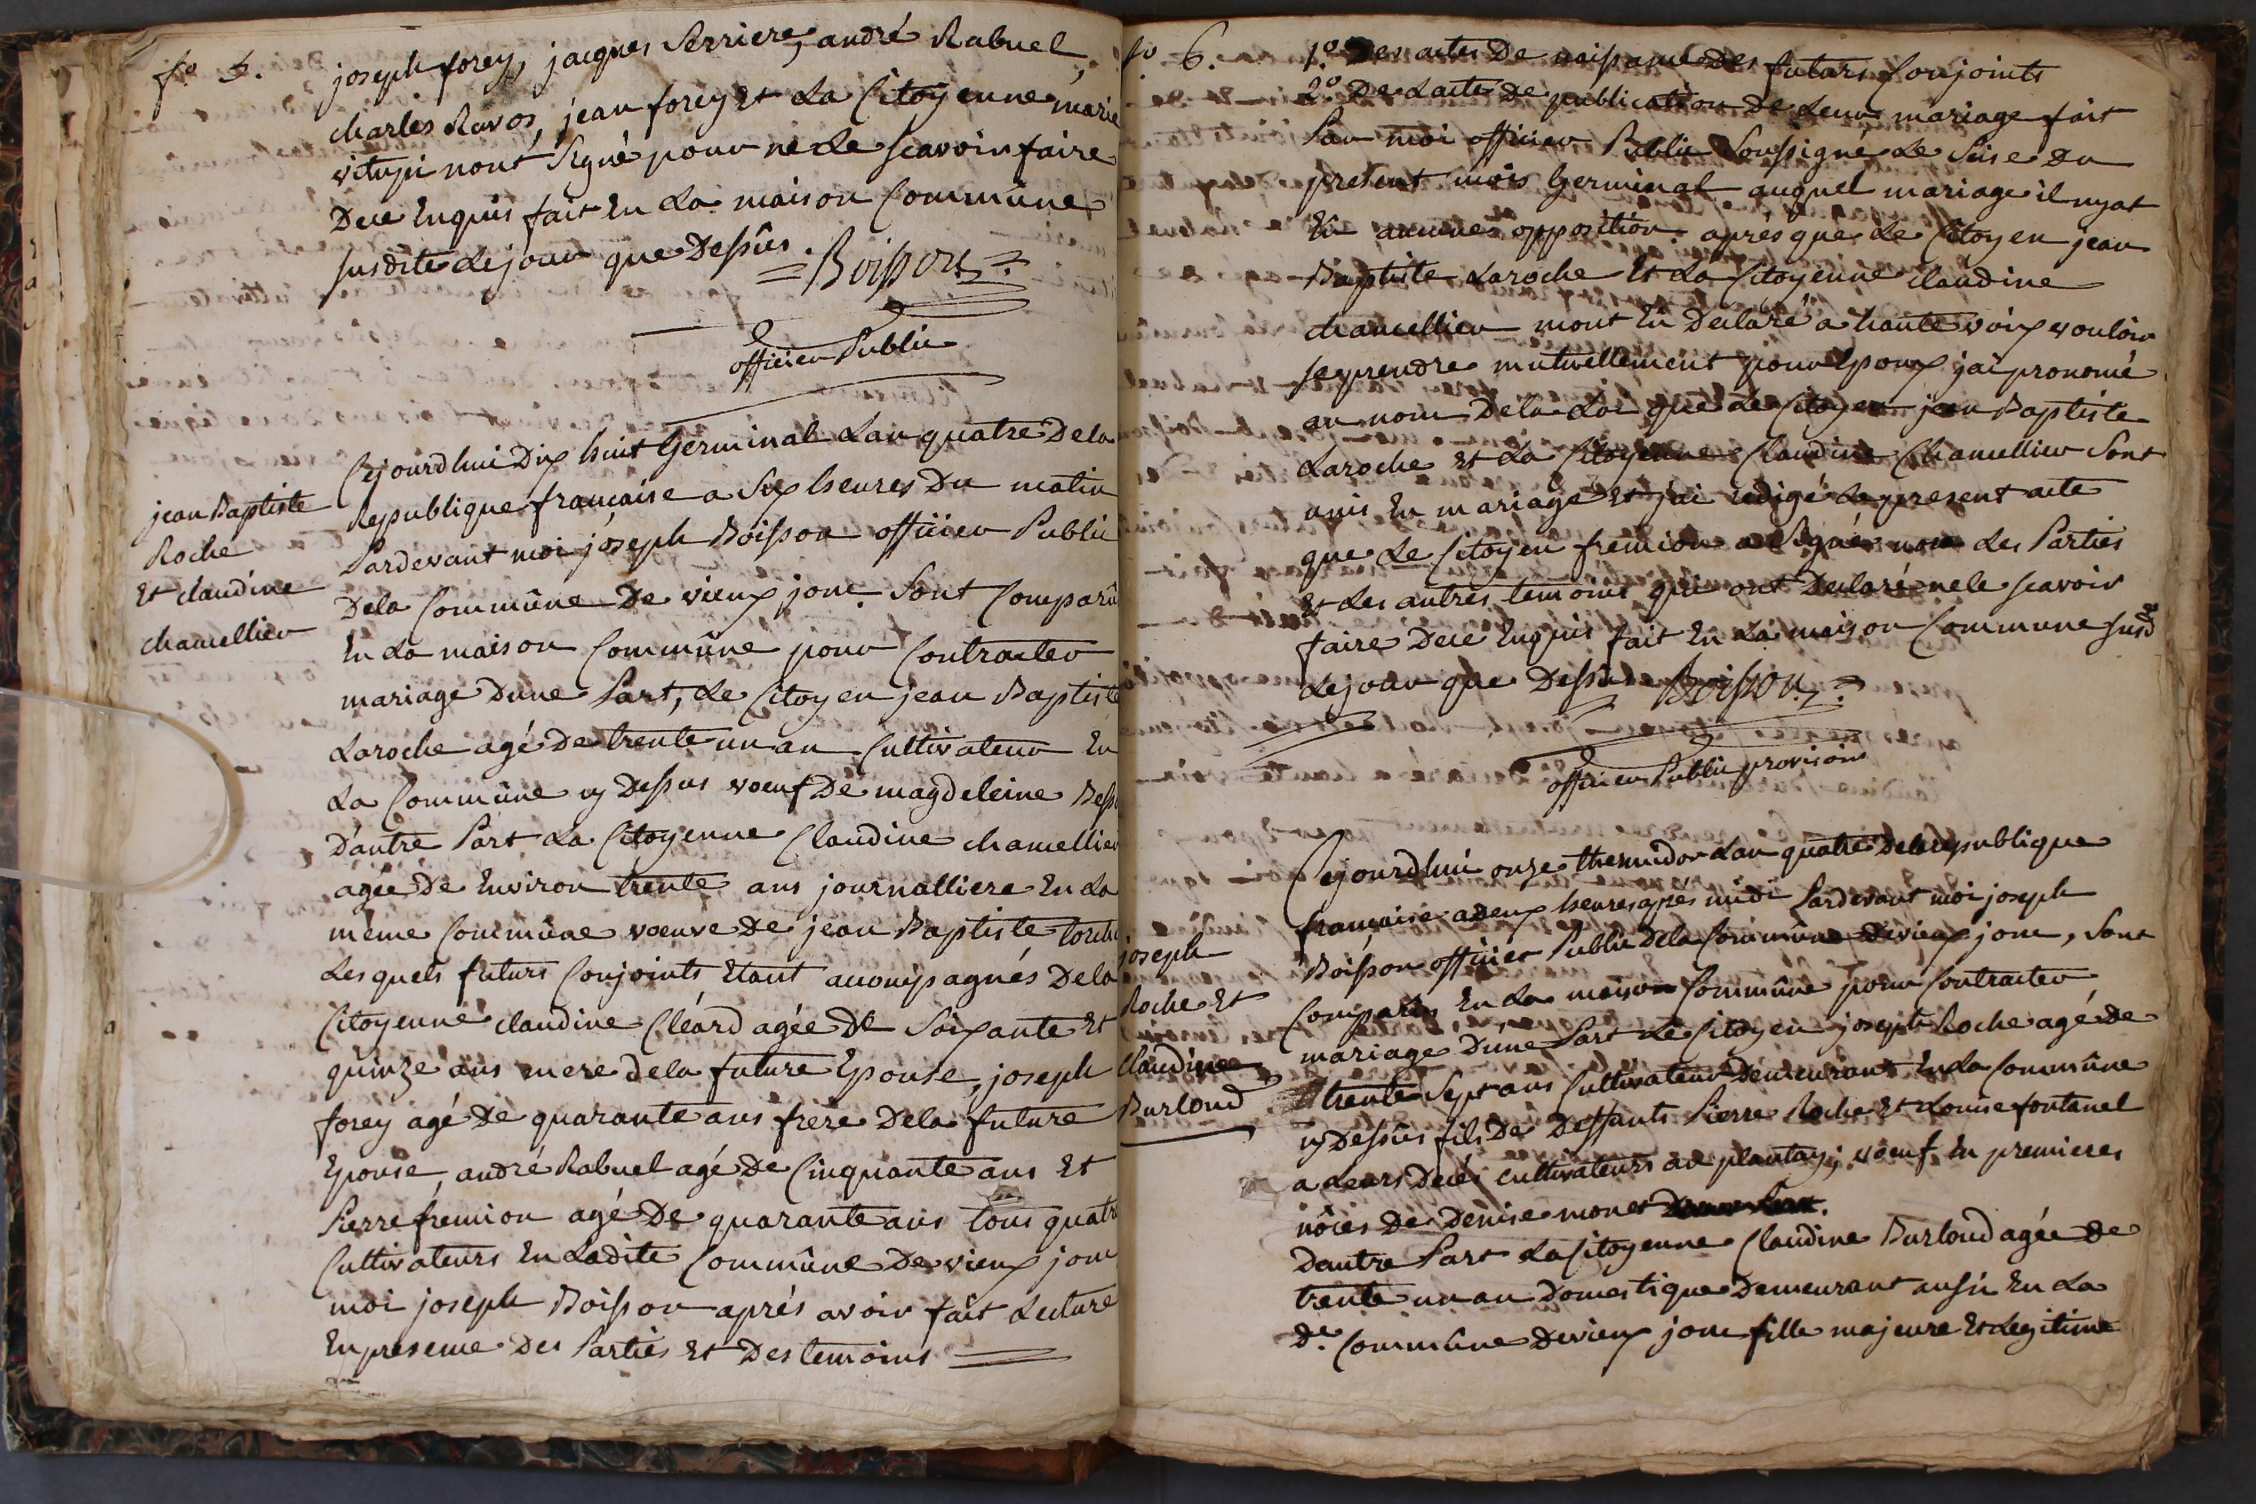 fo 5.
joseph forey, jacques Serriere, andré Rabuel,
charles Ravos, jean forey Et La Citoyenne marie
vitupi nont Signé pour ne Le scavoir faire
Dece Enquis fait En La maison Commûne
susdite Le jour que Dessûs.
= Boisson =
officier Public
jean Baptiste
Roche
Et claudine
chamellier
Cejourdhui Dix huit Germinal Lan quatre Dela
Republique francaise a Six heures Du matin
Pardevant moi joseph Boisson officier Public
Dela Commûne De vieux jonc. Sont Comparû
En La maison Commûne pour Contracter
mariage Dune Part, Le Citoyen jean Baptiste
Laroche agé De trente un an Cultivateur En
La Commûne cy Dessus voeuf De magdeleine
D'autre Part La Citoyenne Claudine chamellier
agée De Environ trente ans journalliere En La
même Commûne voeuve de jean Baptiste
Lesquels futurs Conjoints Etant accompagnés Dela
Citoyenne claudine Cléard agée De Soixante Et
quinze ans mere dela future Epouse, joseph
forey agé De quarante ans frere Dela future
Epouse, andré Rabuel agé De Cinquante ans Et
Pierre fremion agé De quarante ans tous quatre
Cultivateurs En Ladite Commûne De vieux jonc
moi joseph Boisson aprés avoir fait Lecture
En presence Des Parties Et Des temoins
fo 6.
1.o Des actes De naissance des futurs Conjoints
2.o De Lacte De publication De Leur mariage fait
Par moi officier Public Soussigné Le Seise Du
present mois Germinal auquel mariage il nyat
Eû aucune opposition. aprés que Le Citoyen jean
Baptiste Laroche Et La Citoyenne claudine
chamellier mont Eû Declaré a haute voix vouloir
se prendre mutuellement pour Epoux jai prononcé
au nom De la Loi que Le Citoyen jean Baptiste
Laroche Et La Citoyenne Claudine Chamellier Sont
unis En mariage Et j'ai redigé Le present acte
que Le Citoyen fremion a Signé non Les Parties
Et Les autres temoins qui ont Declaré ne le scavoir
faire Dece Enquis fait En La maison Commune susd
Le jour que Dessûs Boisson
officier Public provisoire
joseph
Roche Et
Claudine
Burloud
Cejourdhui onze thermidor Lan quatre Dela republique
francaise a deux heures aprés midi Pardevant moi joseph
Boisson officier Public Dela Commûne De vieux jonc, Sont
Comparûs En La maison Commûne pour Contracter
mariage D'une Part Le Citoyen joseph Roche agé De
trente Sept ans Cultivateur Demeurant En La Commûne
cy Dessûs fils De Deffunts Pierre Roche Et Louise fontanel
a Leurs Decés cultivateurs au plantay; voeuf En premieres
nôces De Denise monet
Dautre Part La Citoyenne Claudine Burloud agée De
trente un an Domestique Demeurant aussi En La
De. Commûne De vieux jonc fille majeure Et Legitime